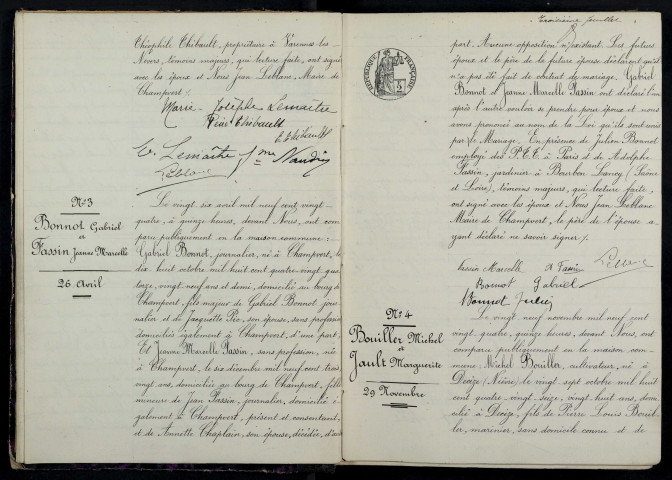 Théophile Thibault, propriétaire à Varennes les
Nevers, témoins majeurs, qui lecture faite, ont signé
avec les époux et Nous Jean Leblanc, Maire de
Champvert./.
Marie-Joséphe Lemaître
René Thibault
E. Thibault
E. Lemaître
Leblanc
N° 3
Bonnot Gabriel
et
Passin Jeanne Marcelle
26 Avril
Le vingt six avril mil neuf cent vingt-
quatre, à quinze heures, devant Nous, ont com
paru publiquement en la maison commune :
Gabriel Bonnot, journalier, né à Champvert, le
dix huit octobre mil huit cent quatre-vingt qua
torze, vingt-neuf ans et demi, domicilié au bourg de
Champvert, fils majeur de Gabriel Bonnot jour
nalier et de Jacquette Pic, son épouse, sans profession
domiciliés également à Champvert, d'une part.
Et Jeanne Marcelle Passin, sans profession, née
à Champvert, le six décembre mil neuf cent trois,
vingt ans, domiciliée au bourg de Champvert, fille
mineure de Jean Passin, journalier, domicilié é
galement à Champvert, présent et consentant,
et de Annette Chaplain, son épouse, décédée, d'autre
Troisième feuillet
RÉPUBLIQUE FRANÇAISE
part. Aucune opposition n'existant. Les futurs
époux et le père de la future épouse déclarent qu'il
n'a pas été fait de contrat de mariage. Gabriel
Bonnot et Jeanne Marcelle Passin ont déclaré l'un
après l'autre vouloir se prendre pour époux et nous
avons prononcé au nom de la Loi qu'ils sont unis
par le Mariage. En présence de Julien Bonnot
employé des P.T.T. à Paris et de Adolphe
Passin, jardinier à Bourbon Lancy (Saône
et Loire), témoins majeurs, qui lecture faite,
ont signé avec les époux et Nous Jean Leblanc
Maire de Champvert, le père de l'épouse a
yant déclaré ne savoir signer./.
Passin Marcelle
A Passin
Leblanc
Bonnot Gabriel
Bonnot Julien
N° 4
Bouiller Michel
et
Jault Marguerite
29 Novembre
Le vingt neuf novembre mil neuf cent
vingt quatre, quinze heures, devant Nous, ont
comparu publiquement en la maison com
mune : Michel Bouiller, cultivateur, né à
Decize (Nièvre) le vingt sept octobre mil huit
cent quatre-vingt-seize, vingt-huit ans, domi
cilié à Decize, fils de Pierre Louis Bouil
ler, marinier, sans domicile connu et de